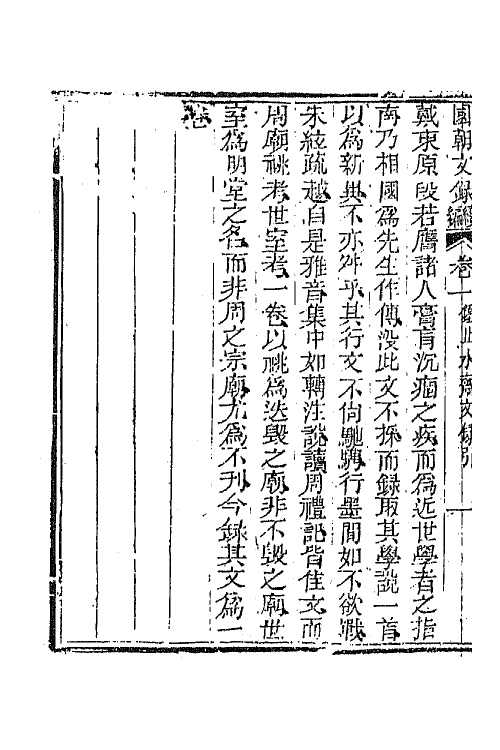 國朝文録續編 卷一 鑑止水齋文録引 一
戴東原段若膺諸人膏肓沉痼之疾而爲近世學者之指
南乃相國爲先生作傳没此文不採而録取其學説一首
以爲新異不亦舛乎其行文不尙馳騁行墨間如不欲戰
朱絃疏越自是雅音集中如轉注說讀周禮記皆佳文而
周廟祧考世室考一卷以祧爲迭毀之廟非不毀之廟世
室爲明堂之名而非周之宗廟尤爲不刊今録其文爲一
卷